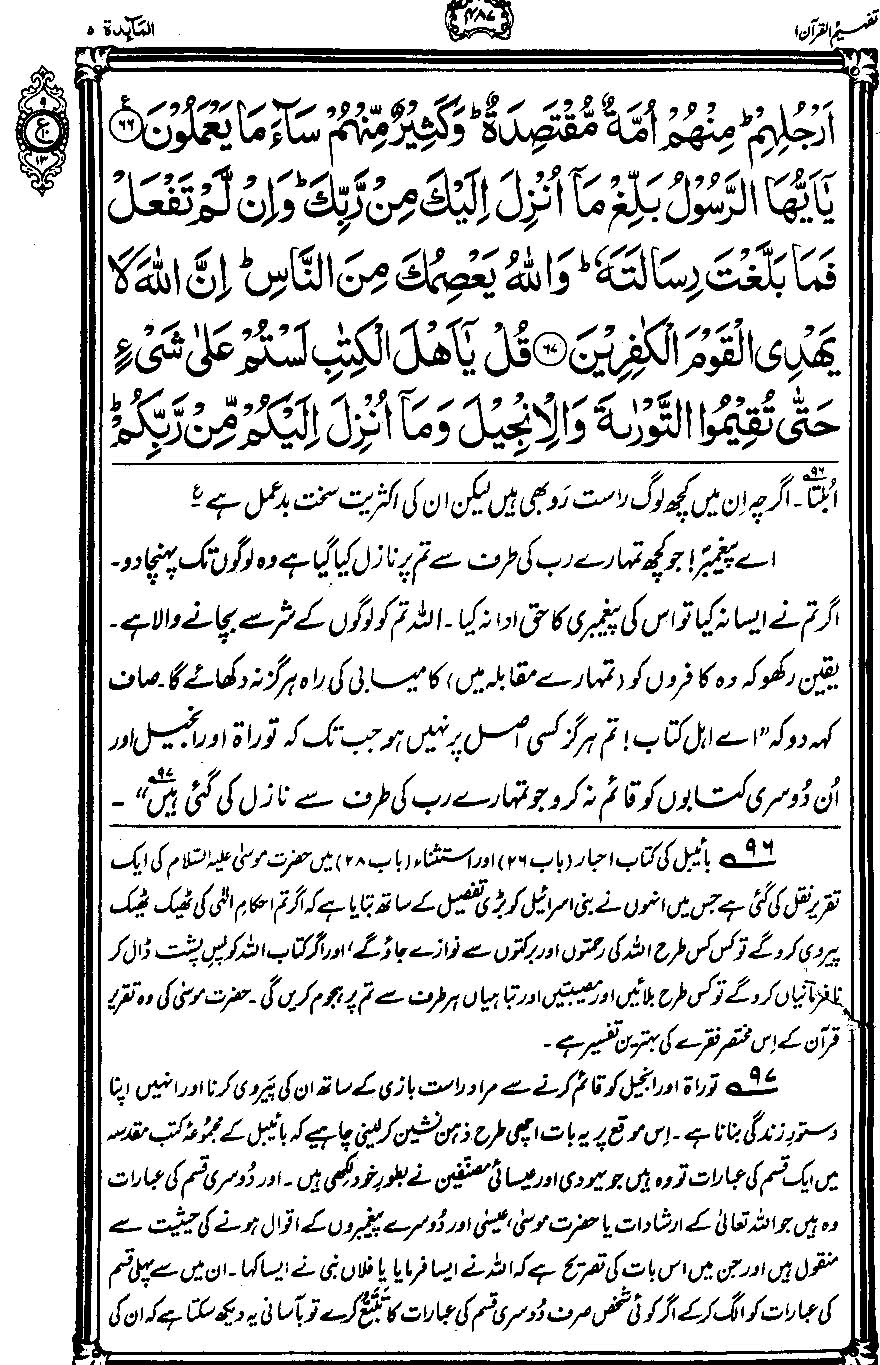 تفہیم القرآن ۱
۴۸۷
المآئدۃ ۵
اَرْجُلِهِمْ ؕ مِنْهُمْ اُمَّةٌ مُّقْتَصِدَةٌ ؕ وَكَثِيْرٌ مِّنْهُمْ سَآءَ مَا يَعْمَلُوْنَ ﴿۶۶﴾ ع
يٰۤاَيُّهَا الرَّسُوْلُ بَلِّغْ مَاۤ اُنْزِلَ اِلَيْكَ مِنْ رَّبِّكَ ؕ وَاِنْ لَّمْ تَفْعَلْ
فَمَا بَلَّغْتَ رِسَالَتَهٗ ؕ وَاللّٰهُ يَعْصِمُكَ مِنَ النَّاسِ ؕ اِنَّ اللّٰهَ لَا
يَهْدِى الْقَوْمَ الْكٰفِرِيْنَ ﴿۶۷﴾ قُلْ يٰۤاَهْلَ الْكِتٰبِ لَسْتُمْ عَلٰى شَىْءٍ
حَتّٰى تُقِيْمُوا التَّوْرٰىةَ وَالْاِنْجِيْلَ وَمَاۤ اُنْزِلَ اِلَيْكُمْ مِّنْ رَّبِّكُمْ ؕ
اُبلتا۔۹۶ اگرچہ اِن میں کچھ لوگ راست رَو بھی ہیں لیکن ان کی اکثریت سخت بدعمل ہے ع
اے پیغمبرؐ! جو کچھ تمہارے رب کی طرف سے تم پر نازل کیا گیا ہے وہ لوگوں تک پہنچا دو۔
اگر تم نے ایسا نہ کیا تو اس کی پیغمبری کا حق ادا نہ کیا۔ اللہ تم کو لوگوں کے شر سے بچانے والا ہے۔
یقین رکھو کہ وہ کافروں کو (تمہارے مقابلہ میں) کامیابی کی راہ ہرگز نہ دکھائے گا۔ صاف
کہہ دو کہ ”اے اہل کتاب! تم ہرگز کسی اصل پر نہیں ہو جب تک کہ توراۃ اور انجیل اور
اُن دُوسری کتابوں کو قائم نہ کرو جو تمہارے رب کی طرف سے نازل کی گئی ہیں۹۷“۔
۹۶ بائیبل کی کتاب احبار (باب ۲۶) اور استثناء (باب ۲۸) میں حضرت موسیٰ علیہ السّلام کی ایک
تقریر نقل کی گئی ہے جس میں انہوں نے بنی اسرائیل کو بڑی تفصیل کے ساتھ بتایا ہے کہ اگر تم احکامِ الٰہی کی ٹھیک ٹھیک
پیروی کرو گے تو کس کس طرح اللہ کی رحمتوں اور برکتوں سے نوازے جاؤ گے، اور اگر کتاب اللہ کو پسِ پشت ڈال کر
نافرمانیاں کرو گے تو کس طرح بلائیں اور مصیبتیں اور تباہیاں ہر طرف سے تم پر ہجوم کریں گی۔ حضرت موسیٰ کی وہ تقریر
قرآن کے اِس مختصر فقرے کی بہترین تفسیر ہے۔
۹۷ توراۃ اور انجیل کو قائم کرنے سے مراد راست بازی کے ساتھ ان کی پَیروی کرنا اور انہیں اپنا
دستورِ زندگی بنانا ہے۔ اِس موقع پر یہ بات اچھی طرح ذہن نشین کر لینی چاہیے کہ بائیبل کے مجموعۂ کتب مقدسہ
میں ایک قسم کی عبارات تو وہ ہیں جو یہودی اور عیسائی مصنفین نے بطورِ خود لکھی ہیں۔ اور دُوسری قسم کی عبارات
وہ ہیں جو اللہ تعالیٰ کے ارشادات یا حضرت موسیٰ، عیسیٰ اور دُوسرے پیغمبروں کے اقوال ہونے کی حیثیت سے
منقول ہیں اور جن میں اس بات کی تصریح ہے کہ اللہ نے ایسا فرمایا یا فلاں نبی نے ایسا کہا۔ ان میں سے پہلی قسم
کی عبارات کو الگ کر کے اگر کوئی شخص صرف دُوسری قسم کی عبارات کا تتبّع کرے تو بآسانی یہ دیکھ سکتا ہے کہ ان کی
۹
ع
۱۰
۱۳